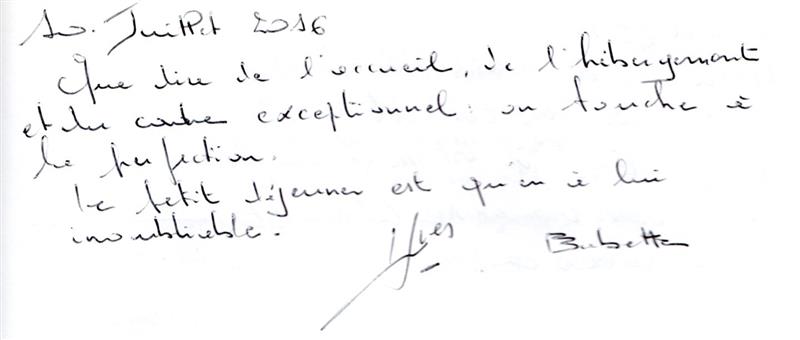 10. Juillet 2016
Que dire de l'accueil, de l'hébergement
et du cadre exceptionnel : on touche à
la perfection.
Le petit déjeuner est à lui
inoubliable.
Yves